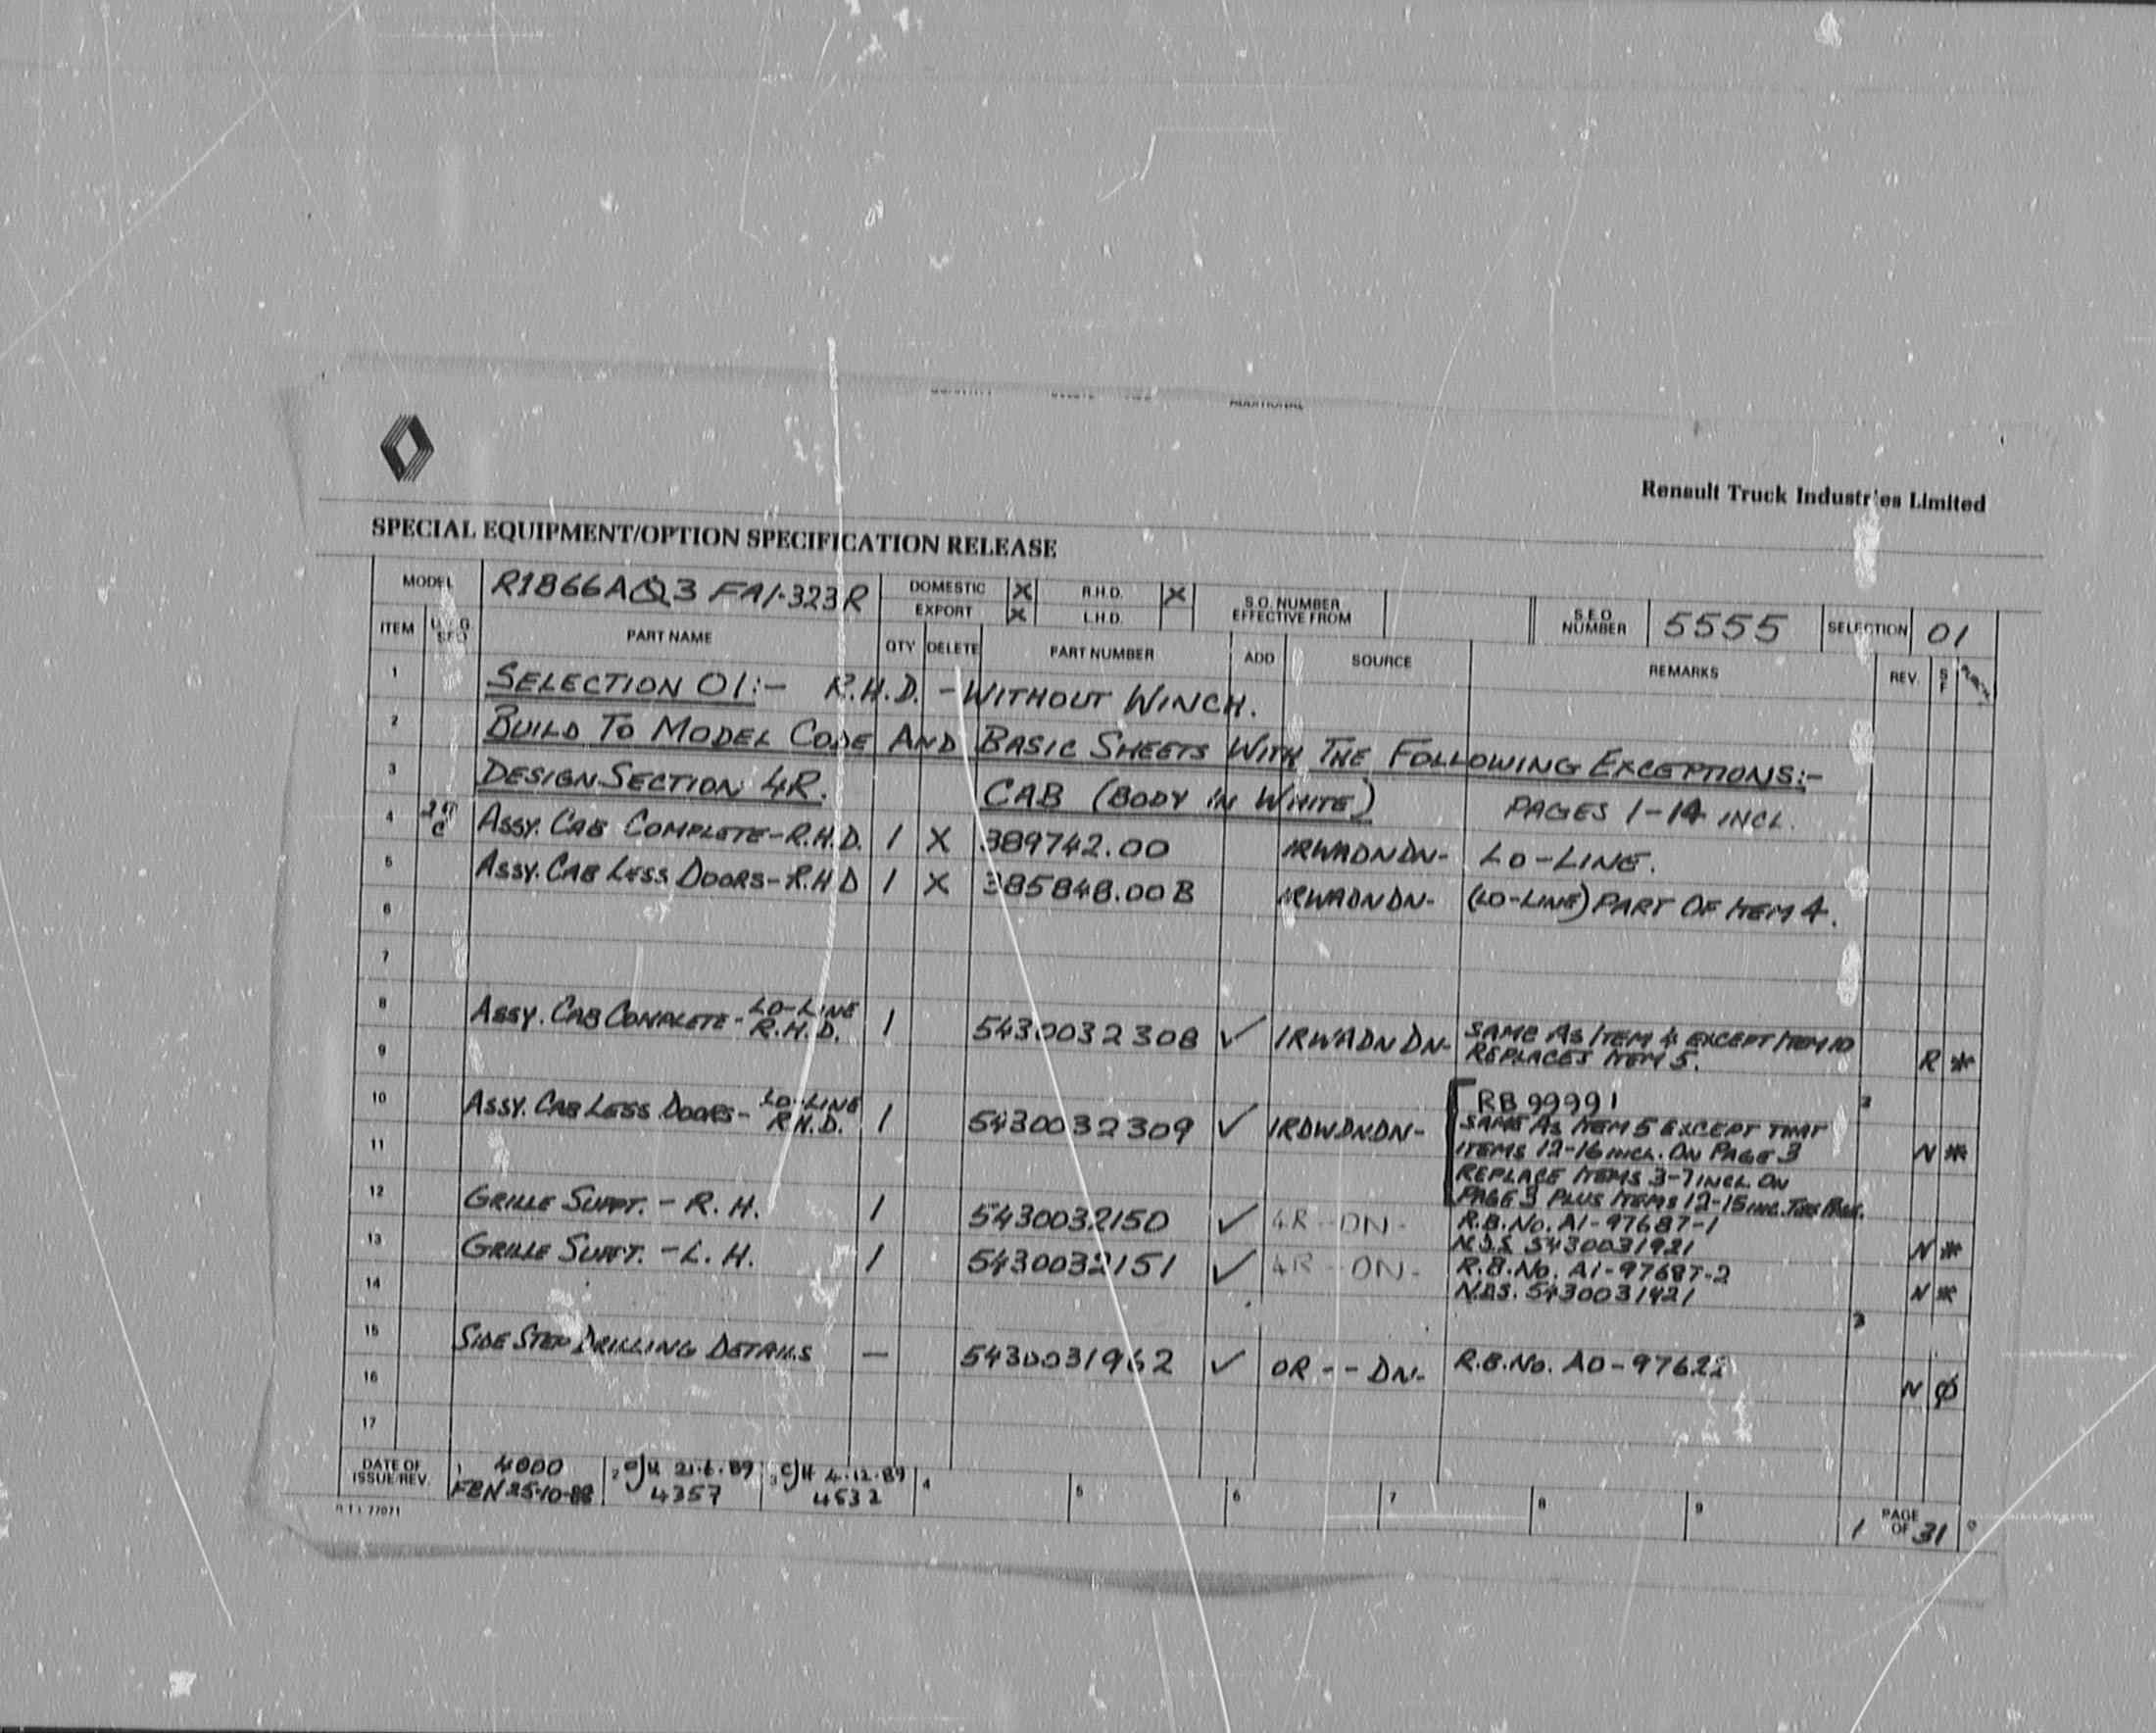 Renault Truck Industries Limited
SPECIAL EQUIPMENT/OPTION SPECIFICATION RELEASE
MODEL R1866AQ3 FA1-323R DOMESTIC X R.H.D. X S.O. NUMBER EFFECTIVE FROM S.E.O NUMBER 5555 SELECTION 01
EXPORT X L.H.D.
ITEM PART NAME QTY DELETE PART NUMBER ADD SOURCE REMARKS REV. S F
1 SELECTION 01:- R.H.D. - WITHOUT WINCH.
2 BUILD TO MODEL CODE AND BASIC SHEETS WITH THE FOLLOWING EXCEPTIONS:-
3 DESIGN SECTION 4R. CAB (BODY IN WHITE) PAGES 1-14 INCL.
4 ASSY. CAB COMPLETE-R.H.D. 1 X 389742.00 IRWADNDN- LO-LINE.
5 ASSY. CAB LESS DOORS-R.H D 1 X 385848.00B IRWADNDN- (LO-LINE) PART OF ITEM 4.
6
7
8 ASSY. CAB COMPLETE- LO-LINE R.H.D. 1 5430032308 ✓ IRWADNDN- SAME AS ITEM 4 EXCEPT ITEM 10
9 REPLACES ITEM 5. R *
RB 99991
10 ASSY. CAB LESS DOORS- LO-LINE R.H.D. 1 5430032309 ✓ IRDWDNDN- SAME AS ITEM 5 EXCEPT THAT
11 ITEMS 12-16 INCL. ON PAGE 3 N *
REPLACE ITEMS 3-7 INCL. ON
PAGE 3 PLUS ITEMS 12-15 INC.
12 GRILLE SUPPT. - R. H. 1 5430032150 ✓ 4R--DN- R.B. No. A1-97687-1
5430031921 N *
13 GRILLE SUPPT. - L. H. 1 5430032151 ✓ 4R--DN- R.B. No. A1-97687-2
14 5430031921 N *
15 SIDE STEP DRILLING DETAILS — 5430031962 ✓ OR--DN- R.B. No. AO-97622
16 N Ø
17
DATE OF ISSUE/REV. 1 4000 FBN 25-10-88 2 CJH 21.6.89 4357 3 CJH 4.12.89 4532 4 5 6 7 8 9 1 PAGE OF 31
R T I 77071